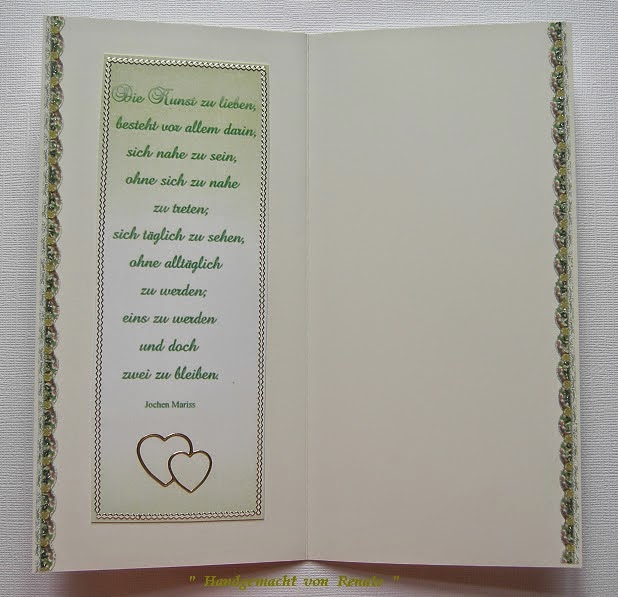 Die Kunst zu lieben,
besteht vor allem darin,
sich nahe zu sein,
ohne sich zu nahe
zu treten;
sich täglich zu sehen,
ohne alltäglich
zu werden;
eins zu werden
und doch
zwei zu bleiben.
Jochen Mariss
" Handgemacht von Renate "